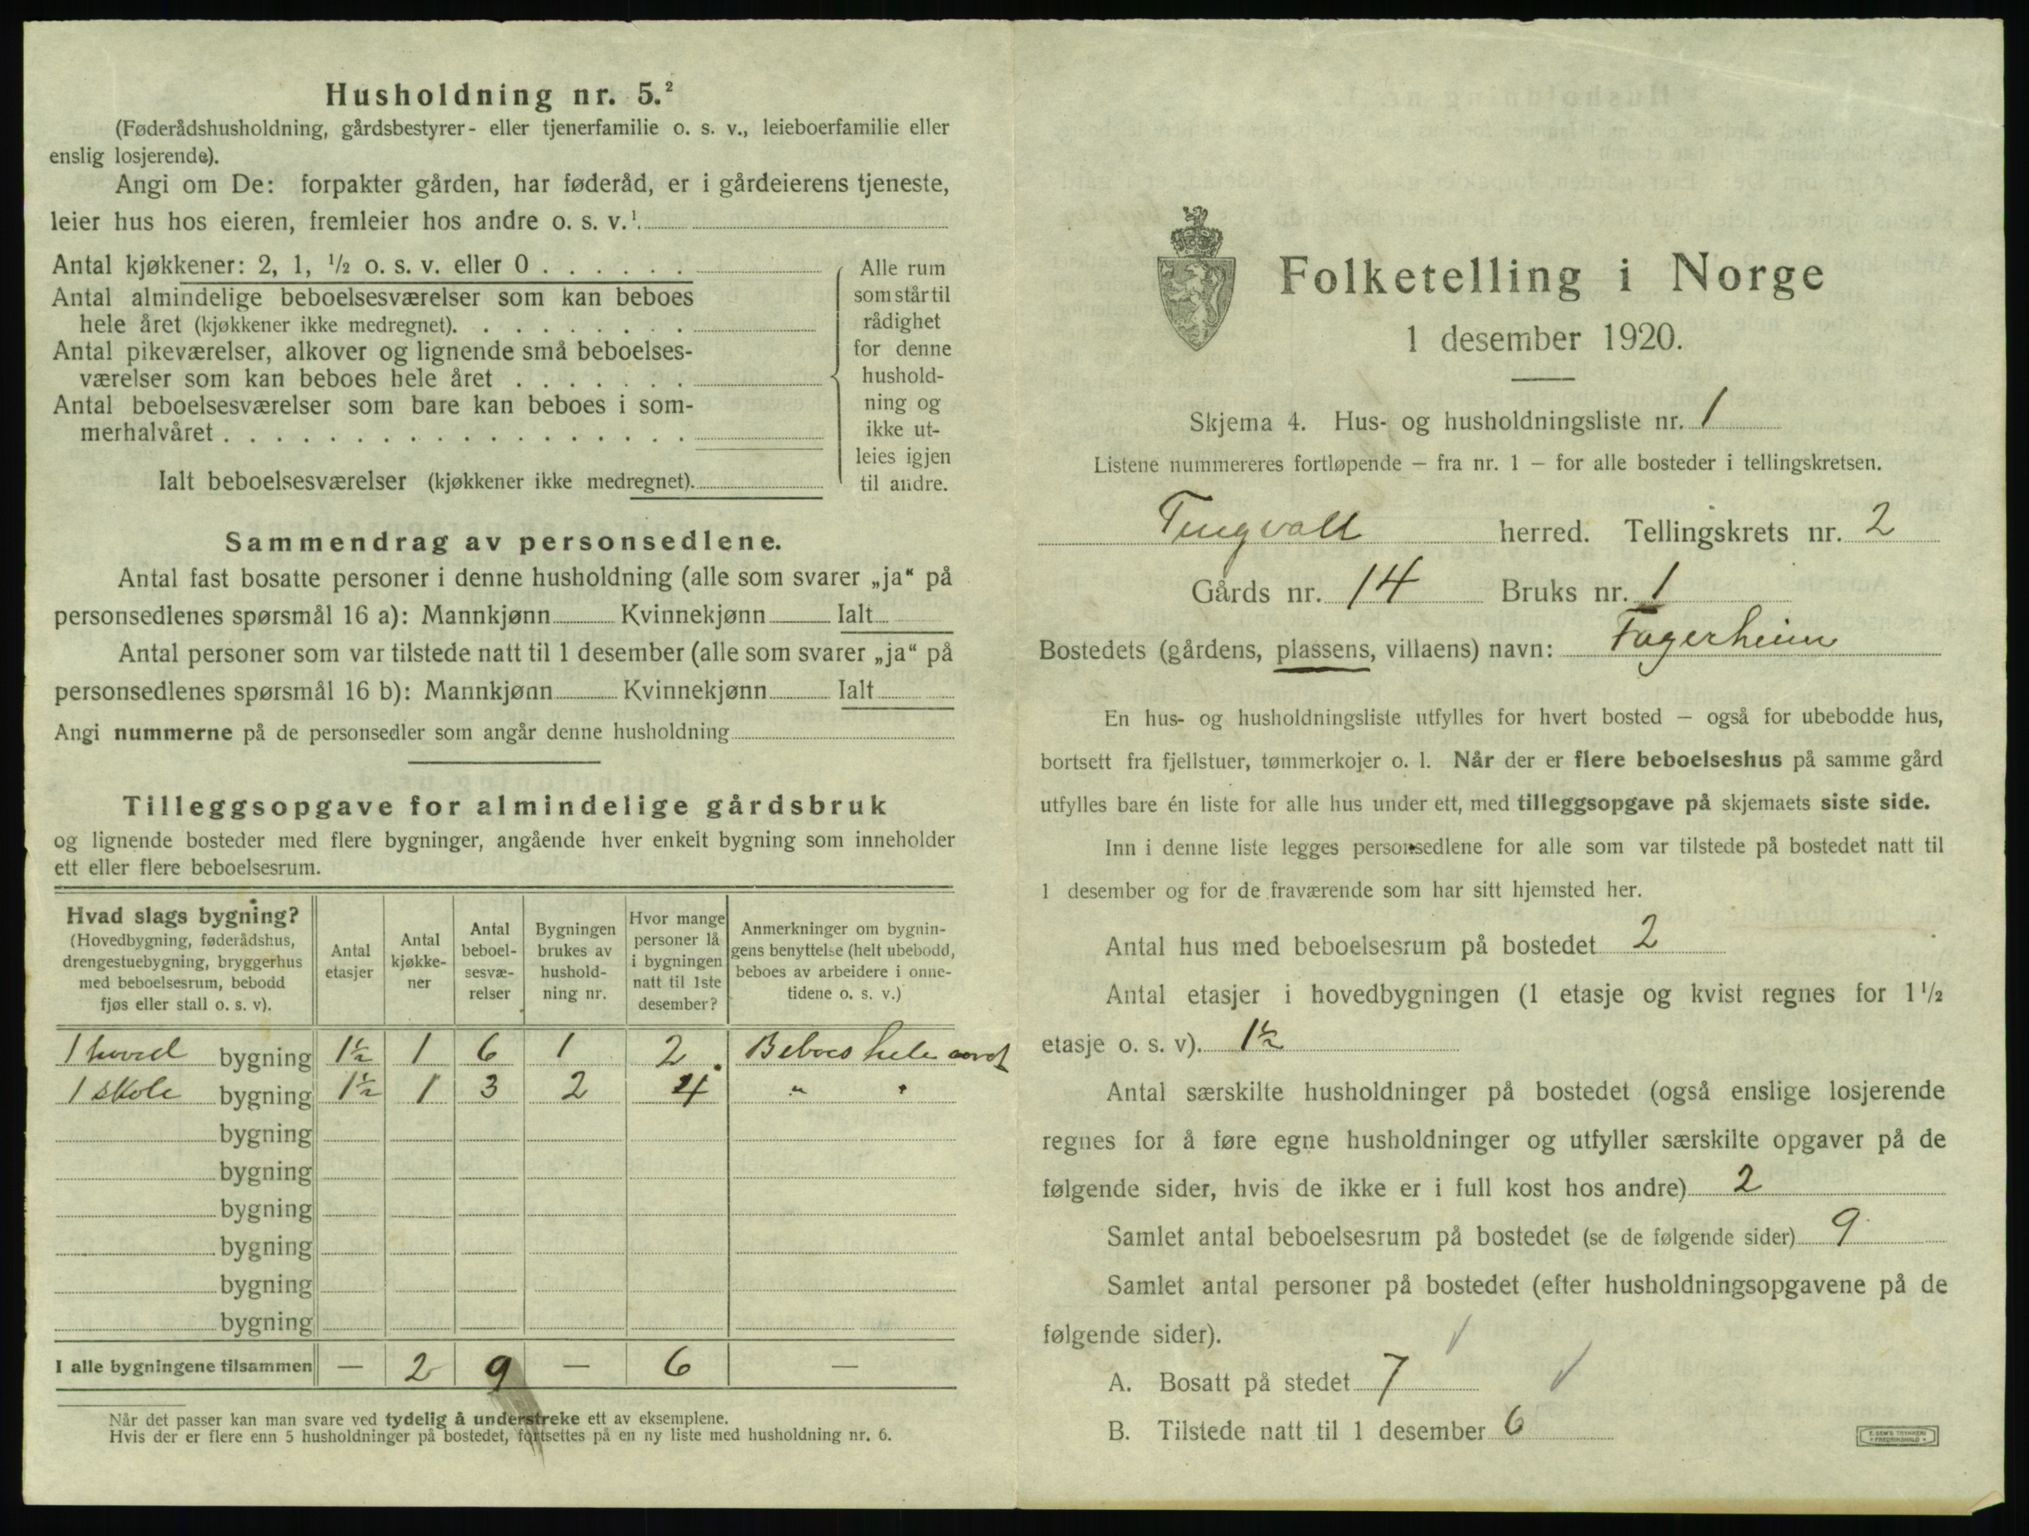 Husholdning nr. 5.²
(Føderådshusholdning, gårdsbestyrer- eller tjenerfamilie o. s. v., leieboerfamilie eller
enslig losjerende).
Angi om De: forpakter gården, har føderåd, er i gårdeierens tjeneste,
leier hus hos eieren, fremleier hos andre o. s. v.¹
Antal kjøkkener: 2, 1, ½ o. s. v. eller 0
Antal almindelige beboelsesværelser som kan beboes
hele året (kjøkkener ikke medregnet).
Antal pikeværelser, alkover og lignende små beboelses-
værelser som kan beboes hele året
Antal beboelsesværelser som bare kan beboes i som-
merhalvåret
Ialt beboelsesværelser (kjøkkener ikke medregnet).
Alle rum
som står til
rådighet
for denne
hushold-
ning og
ikke ut-
leies igjen
til andre.
Sammendrag av personsedlene.
Antal fast bosatte personer i denne husholdning (alle som svarer „ja“ på
personsedlenes spørsmål 16 a): Mannkjønn Kvinnekjønn Ialt
Antal personer som var tilstede natt til 1 desember (alle som svarer „ja“ på
personsedlenes spørsmål 16 b): Mannkjønn Kvinnekjønn Ialt
Angi nummerne på de personsedler som angår denne husholdning
Tilleggsopgave for almindelige gårdsbruk
og lignende bosteder med flere bygninger, angående hver enkelt bygning som inneholder
ett eller flere beboelsesrum.
Hvad slags bygning?
(Hovedbygning, føderådshus,
drengestuebygning, bryggerhus
med beboelsesrum, bebodd
fjøs eller stall o. s. v).
Antal
etasjer
Antal
kjøkke-
ner
Antal
beboel-
sesvæ-
relser
Bygningen
brukes av
hushold-
ning nr.
Hvor mange
personer lå
i bygningen
natt til 1ste
desember?
Anmerkninger om bygnin-
gens benyttelse (helt ubebodd,
beboes av arbeidere i onne-
tidene o. s. v.)
1 hoved bygning 1½ 1 6 1 2 Beboes hele aaret
1 skole bygning 1½ 1 3 2 4 " "
bygning
bygning
bygning
bygning
bygning
bygning
I alle bygningene tilsammen — 2 9 — 6 —
Når det passer kan man svare ved tydelig å understreke ett av eksemplene.
Hvis der er flere enn 5 husholdninger på bostedet, fortsettes på en ny liste med husholdning nr. 6.
Folketelling i Norge
1 desember 1920.
Skjema 4. Hus- og husholdningsliste nr. 1
Listene nummereres fortløpende – fra nr. 1 – for alle bosteder i tellingskretsen.
Tingvoll herred. Tellingskrets nr. 2
Gårds nr. 14 Bruks nr. 1
Bostedets (gårdens, plassens, villaens) navn: Fagerheim
En hus- og husholdningsliste utfylles for hvert bosted – også for ubebodde hus,
bortsett fra fjellstuer, tømmerkojer o. l. Når der er flere beboelseshus på samme gård
utfylles bare én liste for alle hus under ett, med tilleggsopgave på skjemaets siste side.
Inn i denne liste legges personsedlene for alle som var tilstede på bostedet natt til
1 desember og for de fraværende som har sitt hjemsted her.
Antal hus med beboelsesrum på bostedet 2
Antal etasjer i hovedbygningen (1 etasje og kvist regnes for 1½
etasje o. s. v). 1½
Antal særskilte husholdninger på bostedet (også enslige losjerende
regnes for å føre egne husholdninger og utfyller særskilte opgaver på de
følgende sider, hvis de ikke er i full kost hos andre) 2
Samlet antal beboelsesrum på bostedet (se de følgende sider) 9
Samlet antal personer på bostedet (efter husholdningsopgavene på de
følgende sider).
A. Bosatt på stedet 7
B. Tilstede natt til 1 desember 6